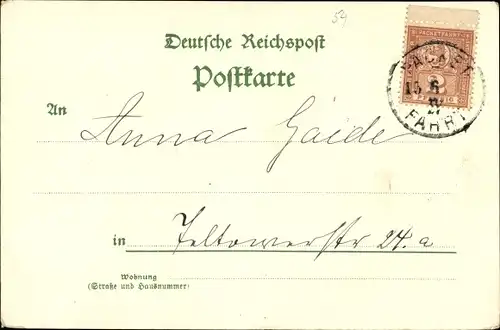 54
Deutsche Reichspost
Postkarte
PACKETFAHRT
PACKET
15 6
FAHRT
An
Anna Gaide
in Teltowerstr 24.a
Wohnung
(Straße und Hausnummer)